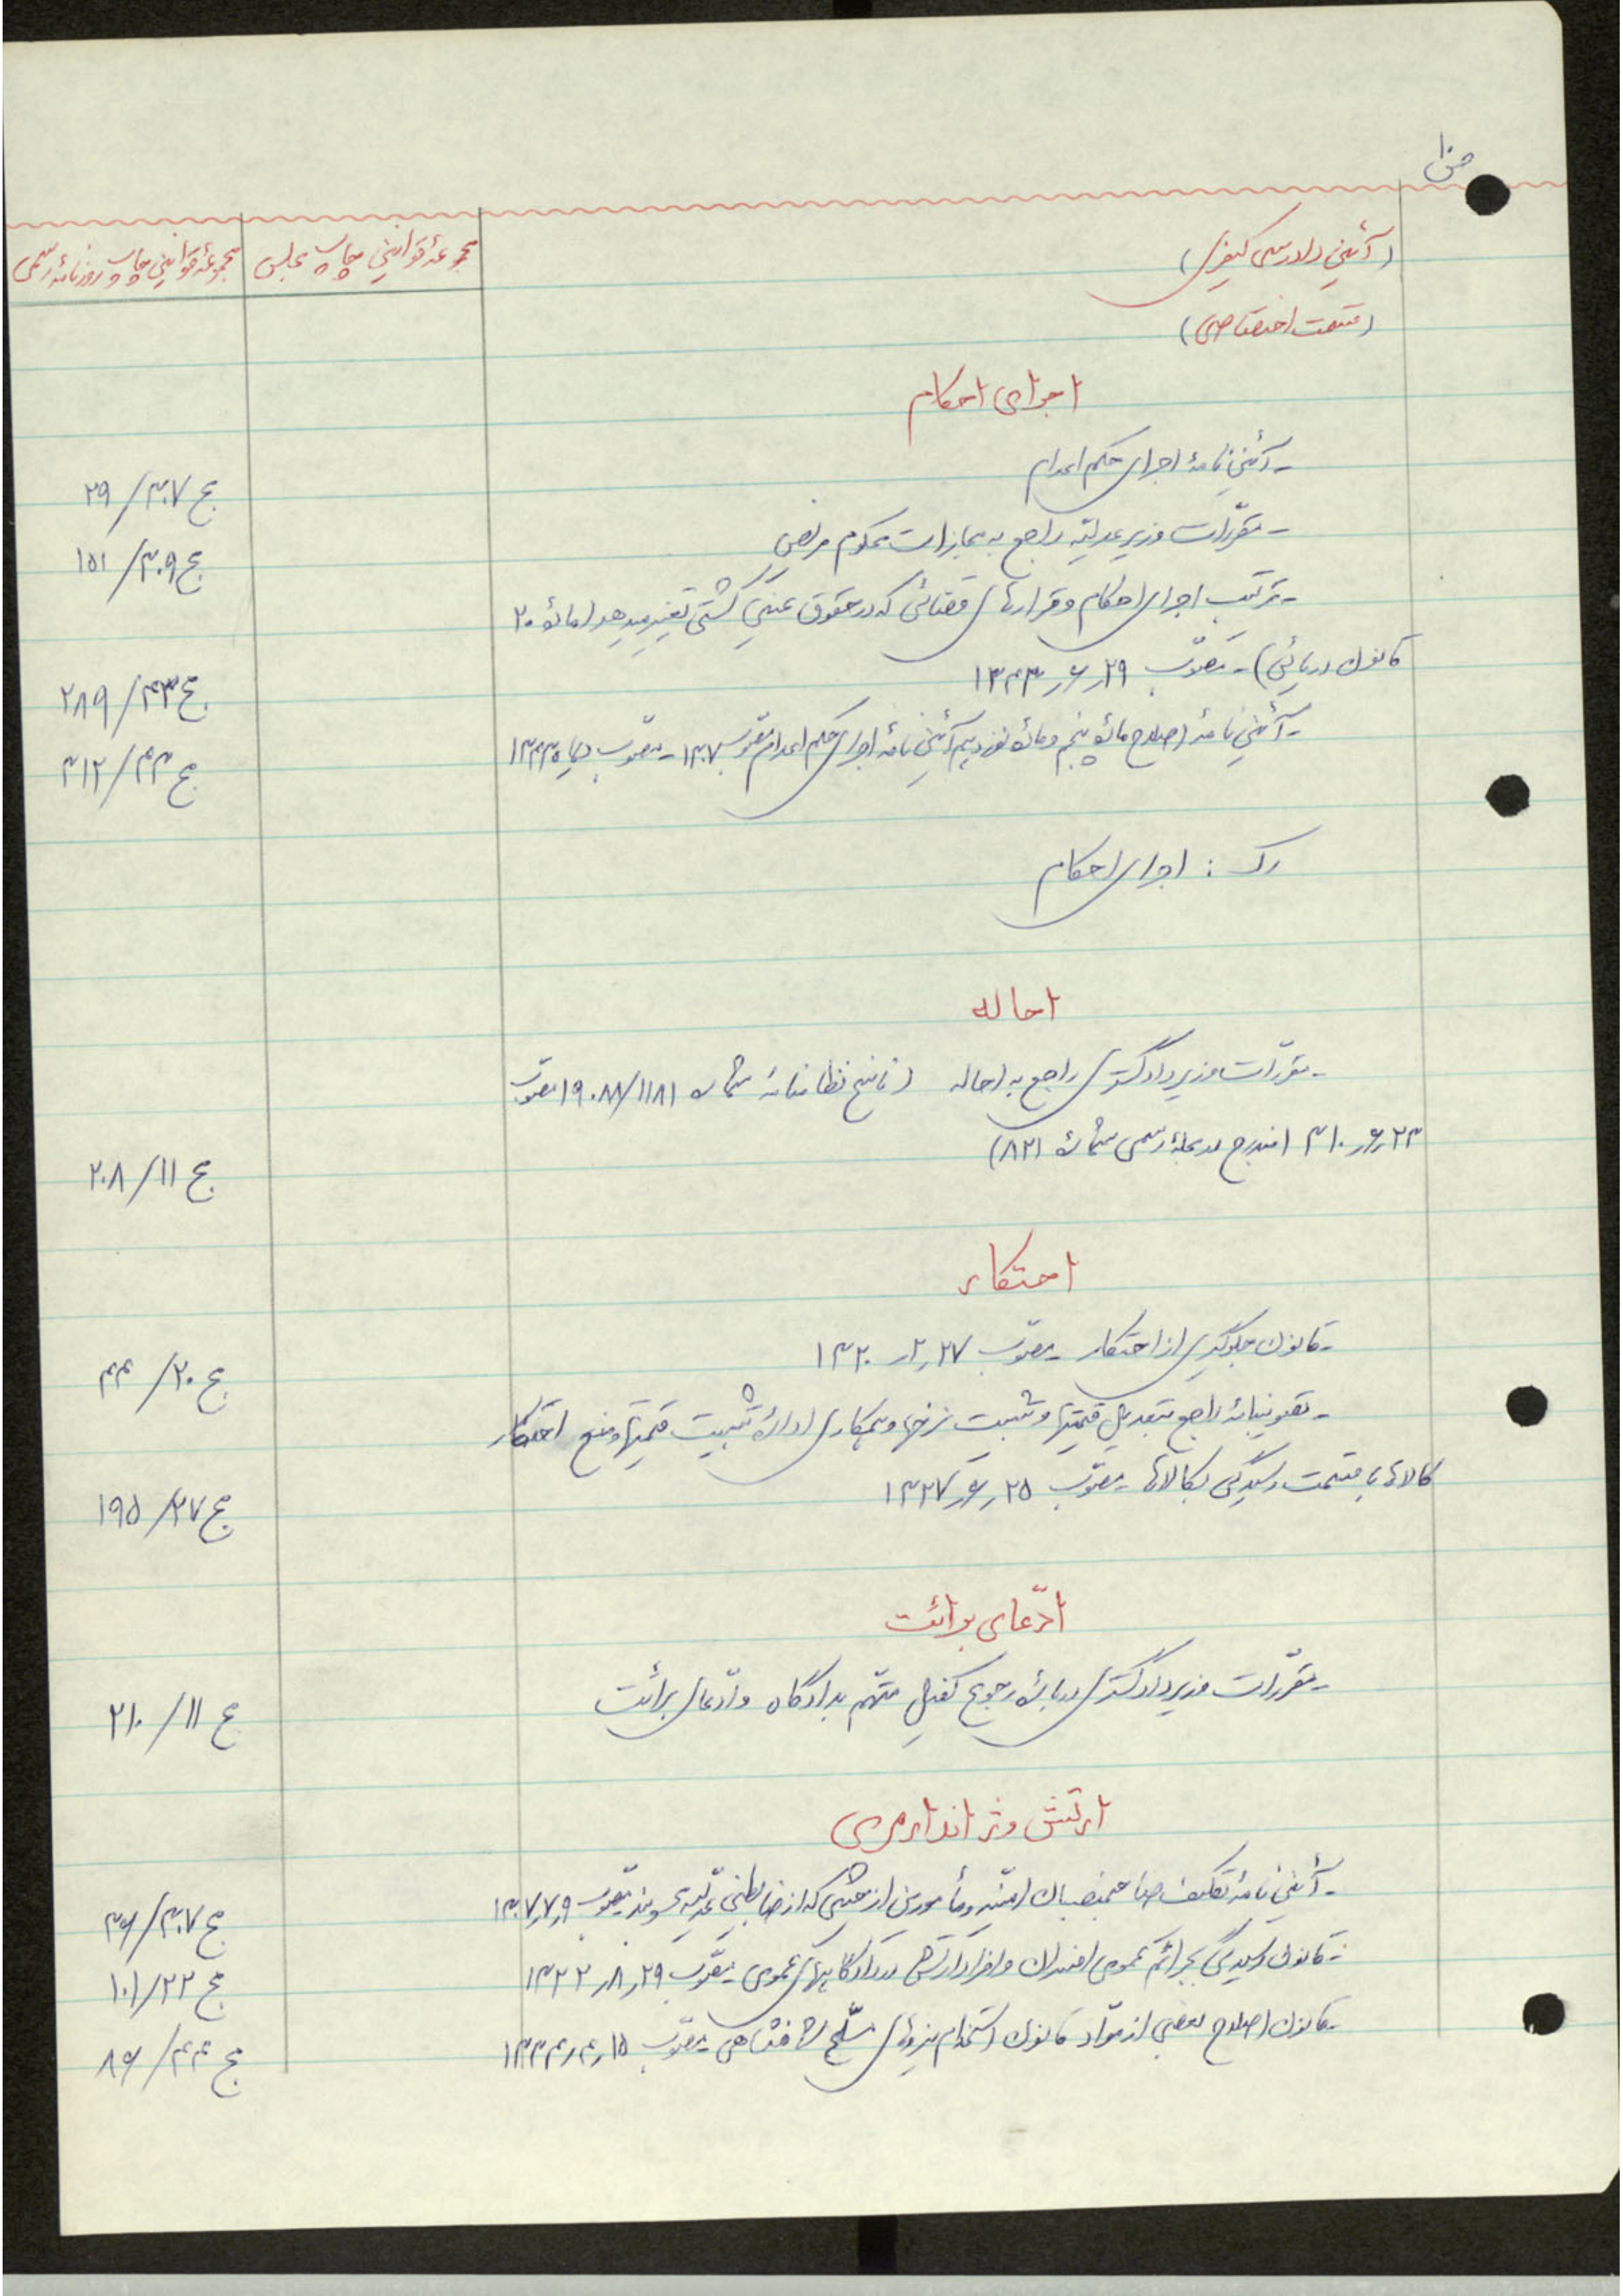 ص۱۰
(آئین دادرسی کیفری)
مجموعهٔ قوانین چاپ مجلس
مجموعهٔ قوانین چاپ روزنامهٔ رسمی
(قسمت اختصاصی)
اجرای احکام
ـ آئین نامهٔ اجرای حکم اعدام
ج ۳۰۷/ ۲۹
ـ مقرّرات وزیر عدلیّه راجع به مجازات محکوم مریض
ج ۳۰۹/ ۱۵۱
ـ ترتیب اجرای احکام و قرارهای قضائی که در حقوق عینی کشتی تغییر میدهد (مادهٔ ۲۰
قانون دریائی) ـ مصوّب ۲۹ر۶ر۱۳۴۳
ج ۴۳/ ۲۸۹
ـ آئین نامهٔ اصلاح مادهٔ پنجم و مادهٔ نوزدهم آئین نامهٔ اجرای حکم اعدام مصوّب ۱۳۰۷ ـ مصوّب دیماه ۱۳۴۳
ج ۴۳/ ۳۱۲
رک : اجرای احکام
احاله
ـ مقرّرات وزیر دادگستری راجع به احاله (ناسخ نظامنامهٔ شمارهٔ ۱۹۰۸۸/۱۱۸۱ مصوّب
۲۳ر۶ر۳۱۰ مندرج در مجلهٔ رسمی شمارهٔ ۸۲۱)
ج ۱۱/ ۲۰۸
احتکار
ـ قانون جلوگیری از احتکار ـ مصوّب ۲۷ر۲ر۱۳۲۰
ج ۲۰/ ۴۴
ـ تصویبنامهٔ راجع بتعدیل قیمتها و تثبیت نرخها و همکاری ادارهٔ تثبیت قیمتها و منع احتکار
کالاها با قسمت رسیدگی بکالاها ـ مصوّب ۲۵ر۶ر۱۳۲۷
ج ۲۷/ ۱۹۵
ادّعای برائت
ـ مقرّرات وزیر دادگستری دربارهٔ رجوع کفیل متّهم بدادگاه و ادّعای برائت
ج ۱۱/ ۲۱۰
ارتش و ژاندارمری
ـ آئین نامهٔ تکلیف صاحبمنصبان امنیّه و مأمورین از حیثی که از ضابطین عدلیّه محسوبند مصوّب ۹ر۷ر۱۳۰۷
ج ۳۰۷/ ۳۶
ـ قانون رسیدگی بجرائم عمومی افسران و افراد ارتش در دادگاههای عمومی ـ مصوّب ۲۹ر۸ر۱۳۲۲
ج ۲۲/ ۱۰۱
ـ قانون اصلاح بعضی از موّاد قانون استخدام نیروهای مسلّح شاهنشاهی ـ مصوّب ۱۵ر۴ر۱۳۴۴
ج ۴۴/ ۸۶